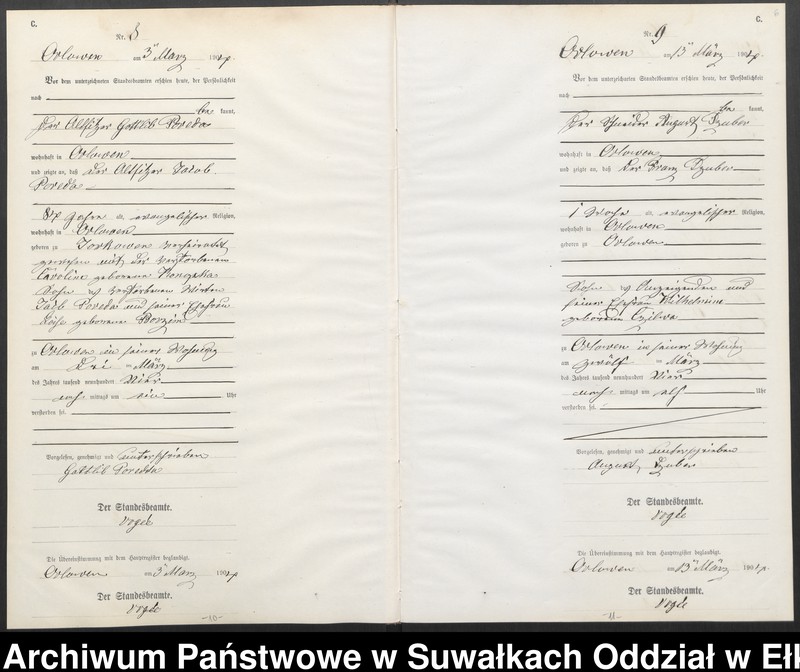 C.
Nr. 8
Orlowen am 3ten März 1904.
Vor dem unterzeichneten Standesbeamten erschien heute, der Persönlichkeit
nach
be kannt,
der Altsitzer Gottlieb Poredda
wohnhaft in Orlowen
und zeigte an, daß der Altsitzer Jacob
Poredda
84 Jahre evangelischer Religion,
wohnhaft in Orlowen
geboren zu verheiratet
gewesen mit der verstorbenen
Caroline geborene
Sohn des verstorbenen Wirten
Jacob Poredda und seiner Ehefrau
geborene
zu Orlowen in seiner Wohnung
am drei ten März
des Jahres tausend neunhundert Vier
nach mittags um ein Uhr
verstorben sei.
Vorgelesen, genehmigt und unterschrieben
Gottlieb Poredda
Der Standesbeamte.
Vogel
Die Übereinstimmung mit dem Hauptregister beglaubigt.
Orlowen am 3ten März 1904.
Der Standesbeamte.
Vogel
-10-
6
C.
Nr. 9
Orlowen am 13ten März 1904.
Vor dem unterzeichneten Standesbeamten erschien heute, der Persönlichkeit
nach
be kannt,
der Schneider August Dzuber
wohnhaft in Orlowen
und zeigte an, daß der Franz Dzuber
1 Woche evangelischer Religion,
wohnhaft in Orlowen
geboren zu Orlowen
Sohn des Anzeigenden und
seiner Ehefrau Wilhelmine
geborene
zu Orlowen in seiner Wohnung
am zwölf ten März
des Jahres tausend neunhundert Vier
nach mittags um elf Uhr
verstorben sei.
Vorgelesen, genehmigt und unterschrieben
August Dzuber
Der Standesbeamte.
Vogel
Die Übereinstimmung mit dem Hauptregister beglaubigt.
Orlowen am 13ten März 1904.
Der Standesbeamte.
Vogel
-11-
Archiwum Państwowe w Suwałkach Oddział w Eł